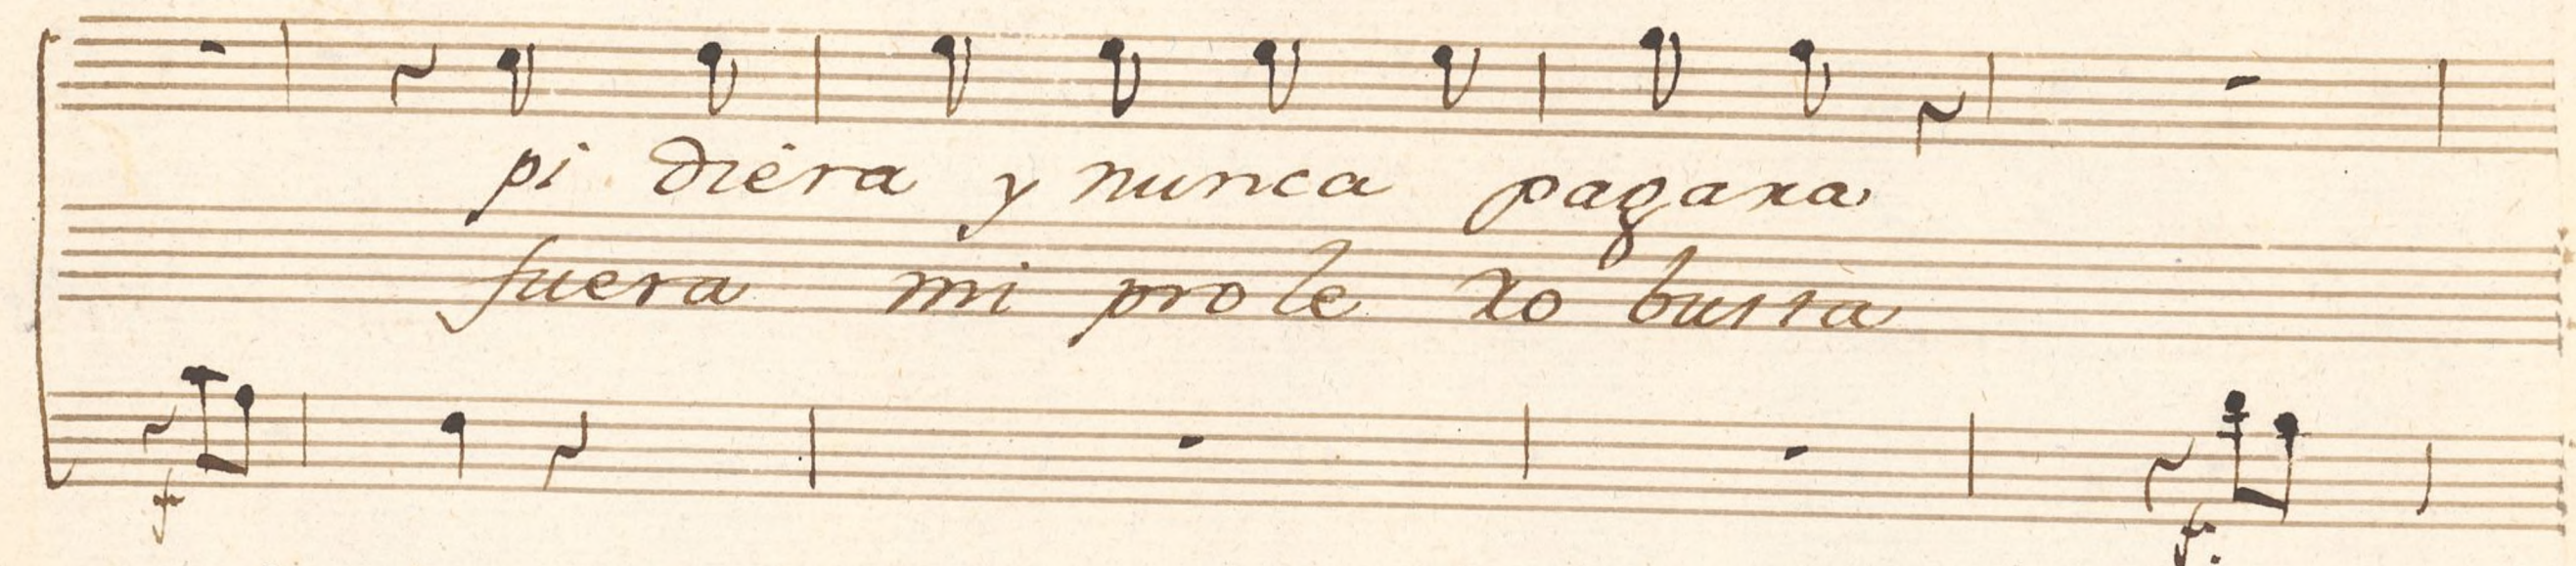 pi diera y nunca pagara
fuera mi prole ro busta
f f.